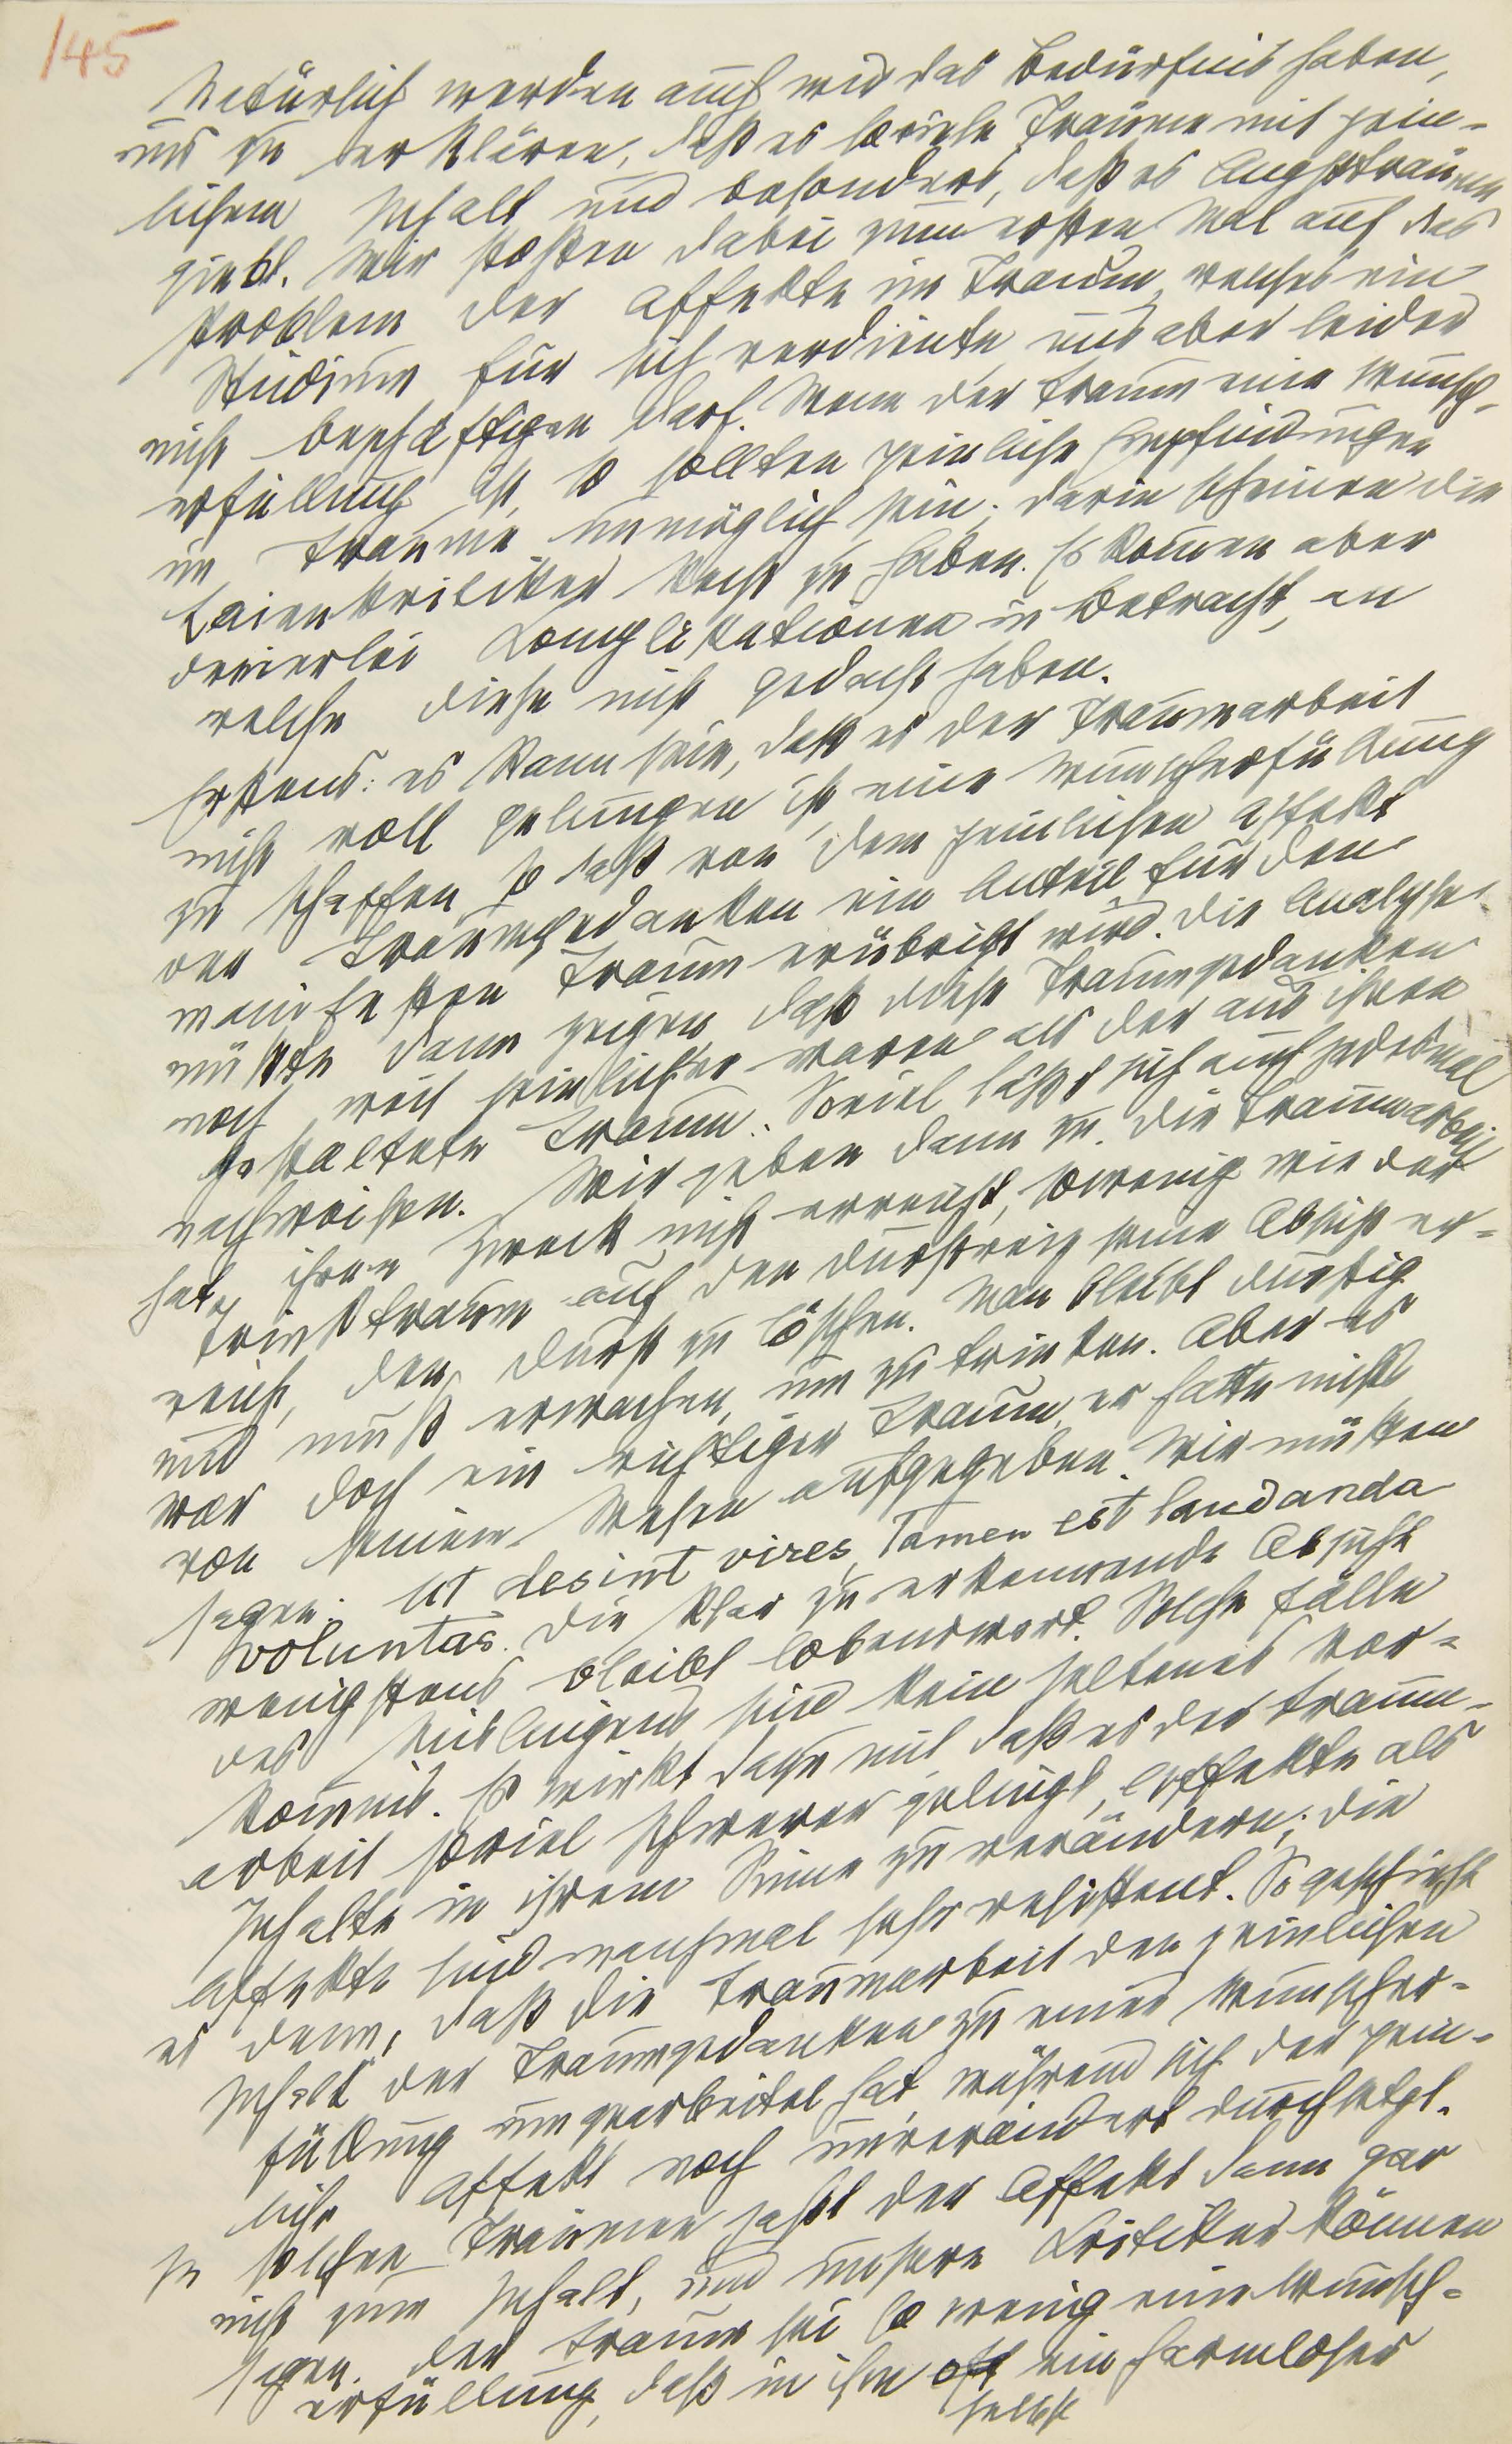 145
Natürlich werden auch wir das Bedürfnis haben,
uns zu erklären, daß es soviele Träume mit pein-
lichem Inhalt und besonders, daß es Angstträume
giebt. Wir stoßen dabei zum ersten Mal auf das
Problem der Affekte im Traum, welches ein
Studium für sich verdiente, uns aber leider
nicht beschäftigen darf. Wenn der Traum eine Wunsch-
erfüllung ist, so sollten peinliche Empfindungen
im Traume unmöglich sein; darin scheinen die
Laienkritiker Recht zu haben. Es kommen aber
dreierlei Komplikationen in Betracht, an
welche diese nicht gedacht haben.
Erstens: es kann sein, daß es der Traumarbeit
nicht voll gelungen ist, eine Wunscherfüllung
zu schaffen, so daß von dem peinlichen Affekt
der Traumgedanken ein Anteil für den
manifesten Traum erübrigt wird. Die Analyse
müßte dann zeigen, daß diese Traumgedanken
noch weit peinlicher waren als der aus ihnen
gestaltete Traum. Soviel läßt sich auch jedesmal
nachweisen. Wir geben dann zu, die Traumarbeit
hat ihren Zweck nicht erreicht, sowenig wie der
Trinktraum auf den Durstreiz seine Absicht er-
reicht, den Durst zu löschen. Man bleibt durstig
und muß erwachen, um zu trinken. Aber es
war doch ein richtiger Traum, er hatte nichts
von seinem Wesen aufgegeben. Wir müssen
sagen: Ut desint vires, Tamen est laudanda
voluntas. Die klar zu erkennende Absicht
wenigstens bleibt lobenswert. Solche Fälle
des Mislingens sind kein seltenes Vor-
kommnis. Es wirkt dazu mit, daß es der Traum-
arbeit soviel schwerer gelingt, Affekte als
Inhalte in ihrem Sinne zu verändern; die
Affekte sind manchmal sehr resistent. So geschieht
es denn, daß die Traumarbeit den peinlichen
Inhalt der Traumgedanken zu einer Wunscher-
füllung umgearbeitet hat, während sich der pein-
liche Affekt noch unverändert durchsetzt.
In solchen Träumen paßt der Affekt dann gar
nicht zum Inhalt, und unsere Kritiker können
sagen, der Traum sei so wenig eine Wunsch-
erfüllung, daß in ihm oft ein harmloser
selbst